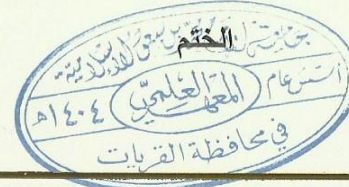 الختم
جامعة الإمام محمد بن سعود الإسلامية
أسس عام
المعهد العلمي
١٤٠٤هـ
في محافظة القريات